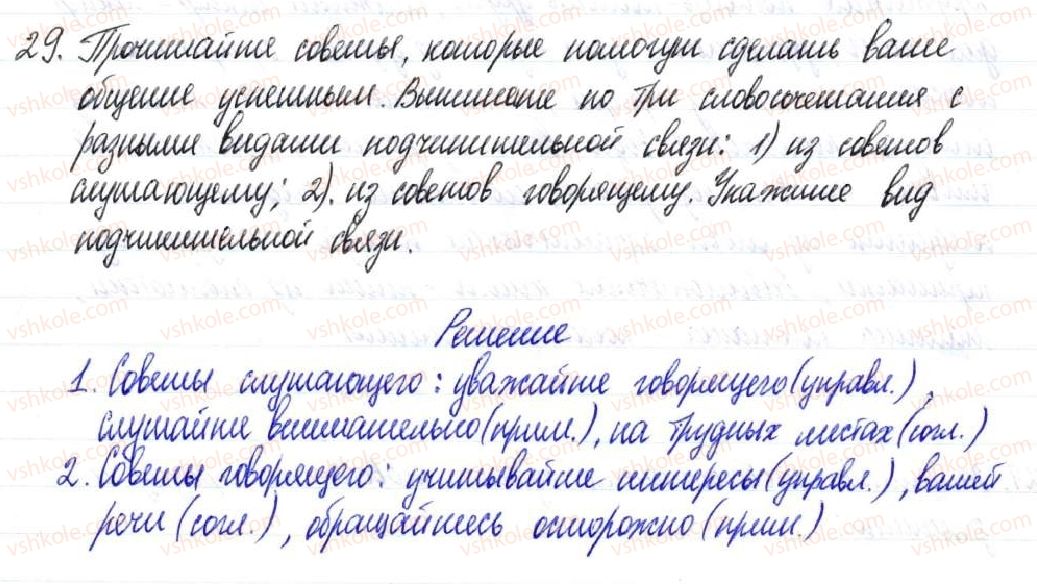 29. Прочитайте советы, которые помогут сделать ваше
общение успешным. Выпишите по три словосочетания с
разными видами подчинительной связи: 1) из советов
слушающему; 2). из советов говорящему. Укажите вид
подчинительной связи.
Решение
1. Советы слушающего: уважайте говорящего (управл.),
слушайте внимательно (прим.), на трудных местах (согл.)
2. Советы говорящего: учитывайте интересы (управл.), вашей
речи (согл.), обращайтесь осторожно (прим.)
vshkole.com